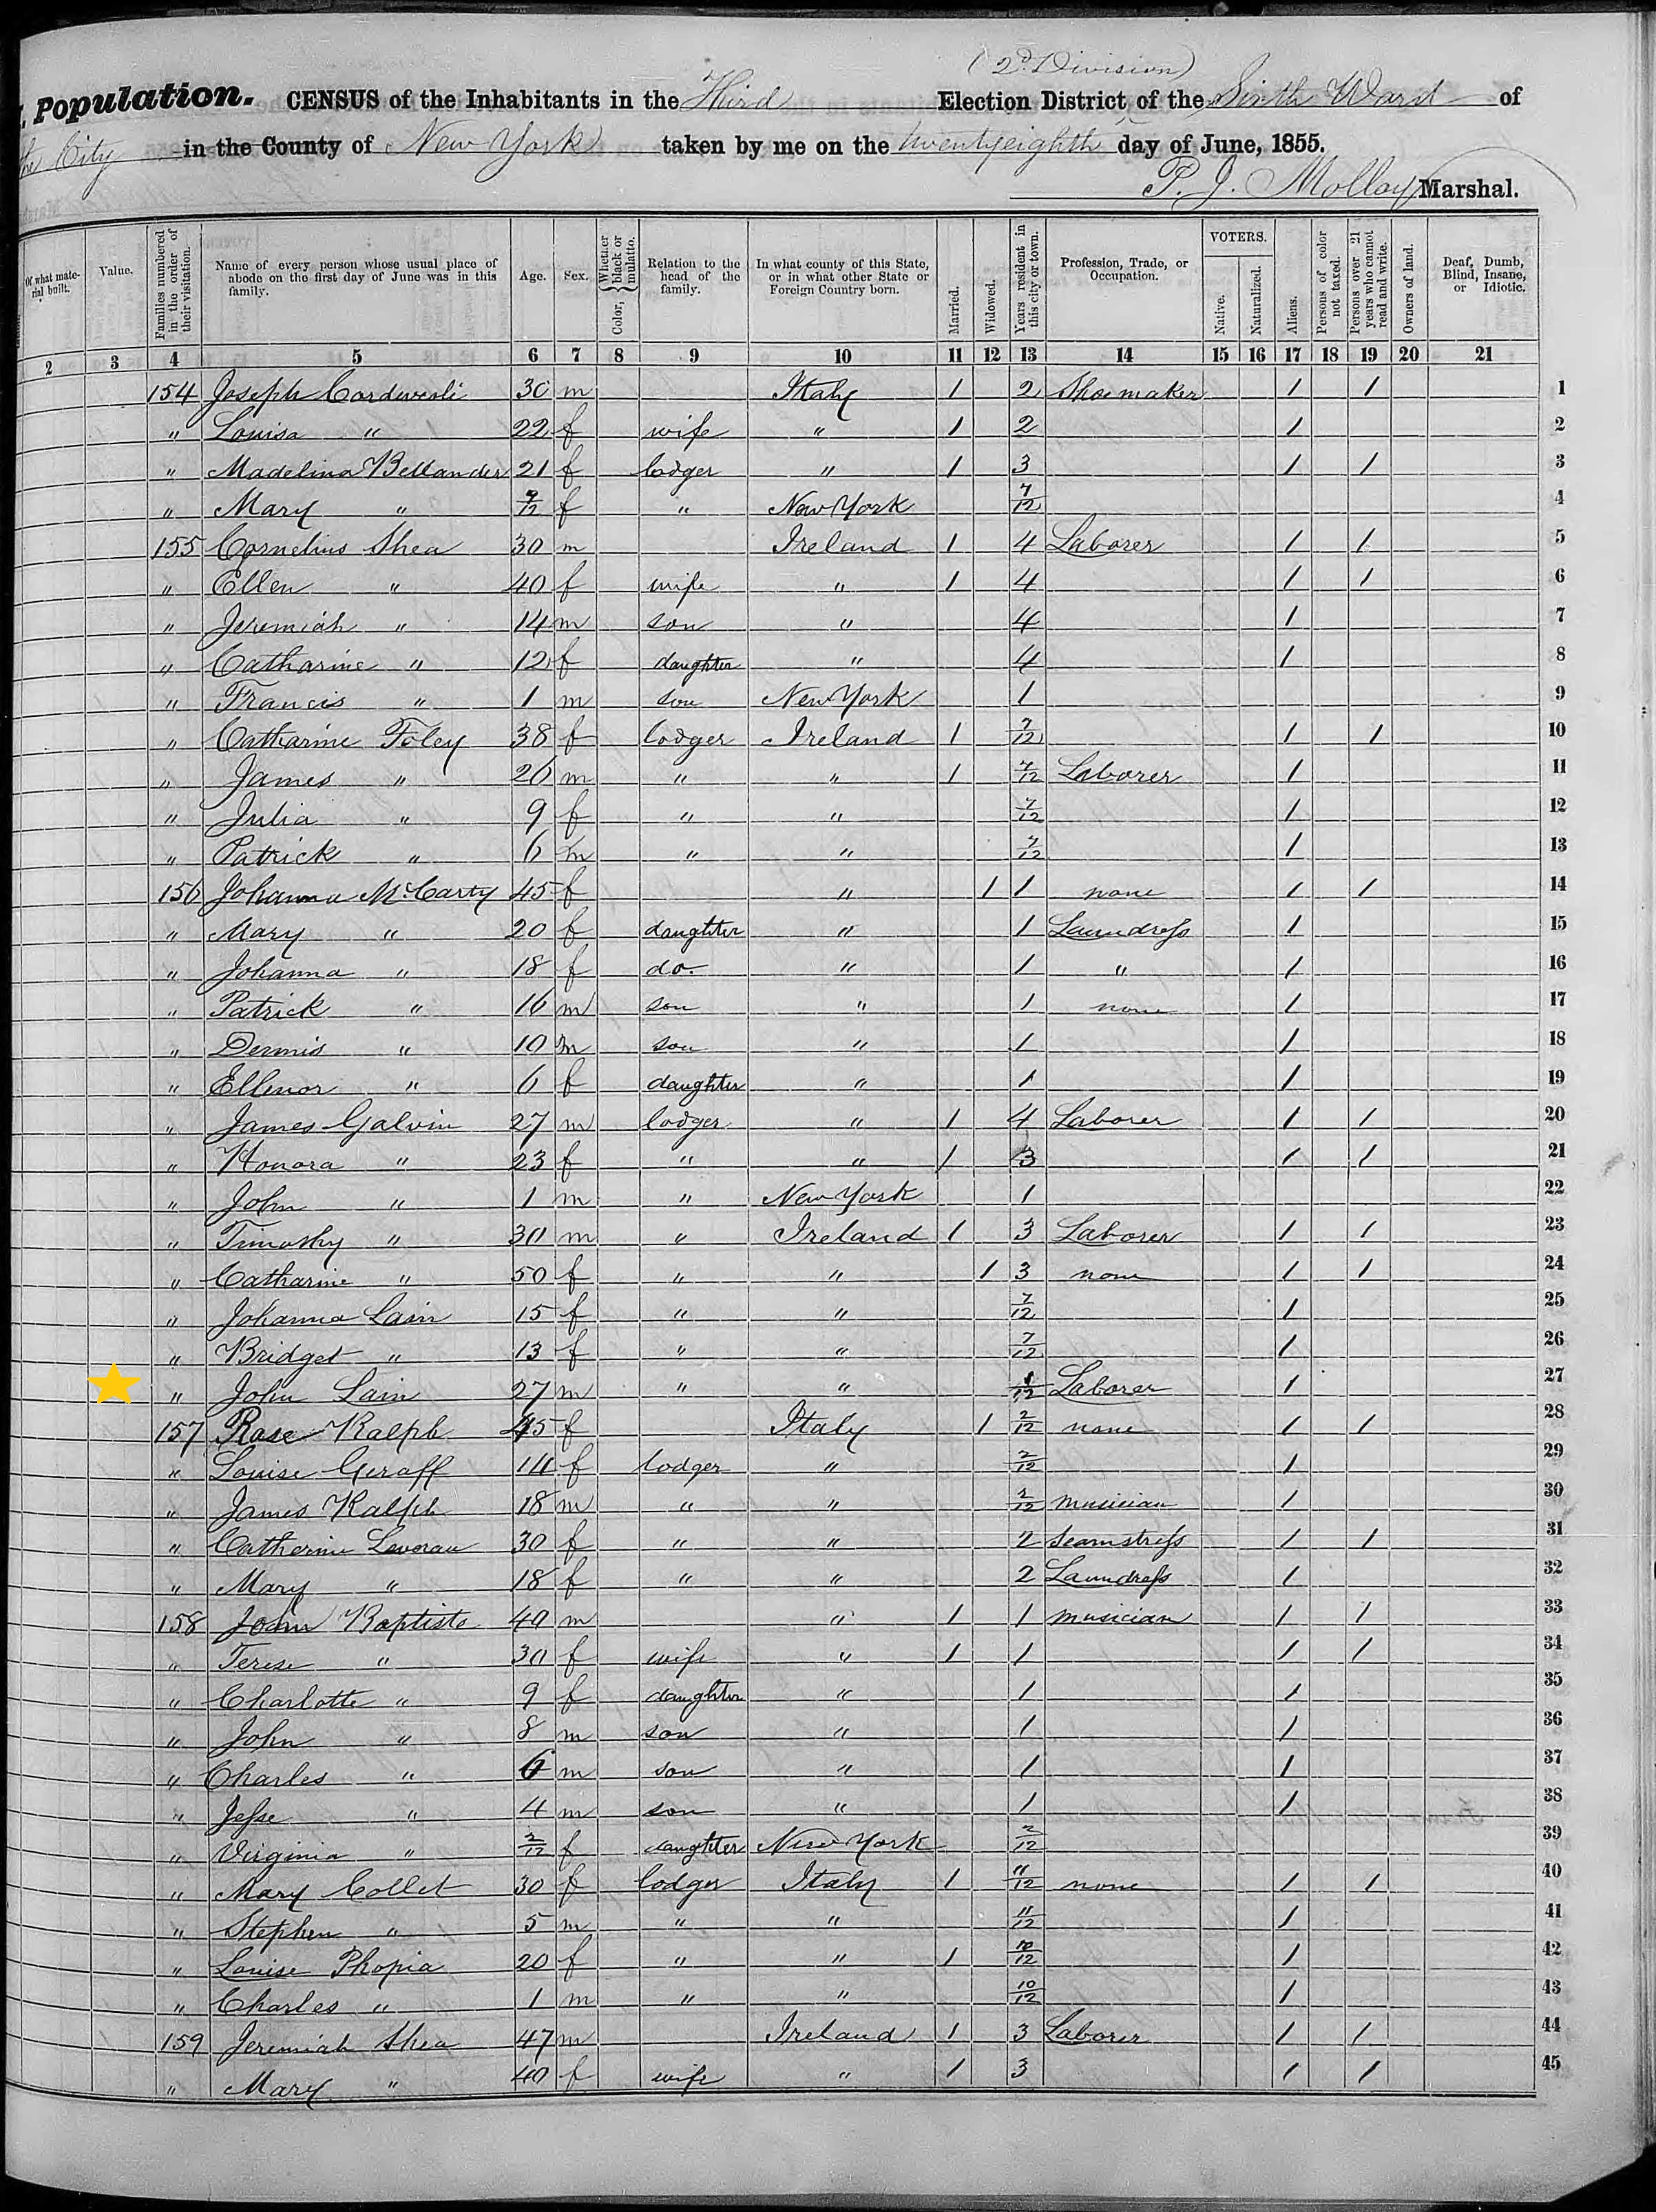 (2d Division)
, Population. CENSUS of the Inhabitants in the Third Election District of the Sixth Ward of
the City in the County of New York taken by me on the twentyeighth day of June, 1855.
P. J. Molloy Marshal.
Of what material built. Value. Families numbered in the order of their visitation. Name of every person whose usual place of abode on the first day of June was in this family. Age. Sex. Color, { Whether black or mulatto. Relation to the head of the family. In what county of this State, or in what other State or Foreign Country born. Married. Widowed. Years resident in this city or town. Profession, Trade, or Occupation. VOTERS. Native. Naturalized. Aliens. Persons of color not taxed. Persons over 21 years who cannot read and write. Owners of land. Deaf, Dumb, Blind, Insane, or Idiotic.
2 3 4 5 6 7 8 9 10 11 12 13 14 15 16 17 18 19 20 21
154 Joseph 30 m Italy 1 2 Shoemaker 1 1 1
" Louisa " 22 f wife " 1 2 1 2
" Madelina Bellander 21 f lodger " 1 3 1 1 3
" Mary " 7/12 f " New York 7/12 4
155 Cornelius Shea 30 m Ireland 1 4 Laborer 1 1 5
" Ellen " 40 f wife " 1 4 1 1 6
" Jeremiah " 14 m son " 4 1 7
" Catharine " 12 f daughter " 4 1 8
" Francis " 1 m son New York 1 9
" Catharine Foley 38 f lodger Ireland 1 7/12 1 1 10
" James " 26 m " " 1 7/12 Laborer 1 11
" Julia " 9 f " " 7/12 1 12
" Patrick " 6 m " " 7/12 1 13
156 Johanna McCarty 45 f " 1 1 none 1 1 14
" Mary " 20 f daughter " 1 Laundress 1 15
" Johanna " 18 f do. " 1 " 1 16
" Patrick " 16 m son " 1 none 1 17
" Dennis " 10 m son " 1 1 18
" Ellenor " 6 f daughter " 1 1 19
" James Galvin 27 m lodger " 1 4 Laborer 1 1 20
" Honora " 23 f " " 1 3 1 1 21
" John " 1 m " New York 1 22
" Timothy " 30 m " Ireland 1 3 Laborer 1 1 23
" Catharine " 50 f " " 1 3 none 1 1 24
" Johanna Lain 15 f " " 7/12 1 25
" Bridget " 13 f " " 7/12 1 26
" John Lain 27 m " " 1/12 Laborer 1 27
157 Rose Ralph 45 f Italy 1 2/12 none 1 1 28
" Louise Geraff 14 f lodger " 2/12 1 29
" James Ralph 18 m " " 2/12 musician 1 30
" Catherine Leverau 30 f " " 2 seamstress 1 1 31
" Mary " 18 f " " 2 Laundress 1 32
158 John Baptiste 40 m " 1 1 musician 1 1 33
" Terese " 30 f wife " 1 1 1 1 34
" Charlotte " 9 f daughter " 1 1 35
" John " 8 m son " 1 1 36
" Charles " 6 m son " 1 1 37
" Jesse " 4 m son " 1 1 38
" Virginia " 2/12 f daughter New York 2/12 39
" Mary Collet 30 f lodger Italy 1 11/12 none 1 1 40
" Stephen " 5 m " " 11/12 1 41
" Louise Phopia 20 f " " 1 10/12 1 42
" Charles " 1 m " " 10/12 1 43
159 Jeremiah Shea 47 m Ireland 1 3 Laborer 1 1 44
" Mary " 40 f wife " 1 3 1 1 45